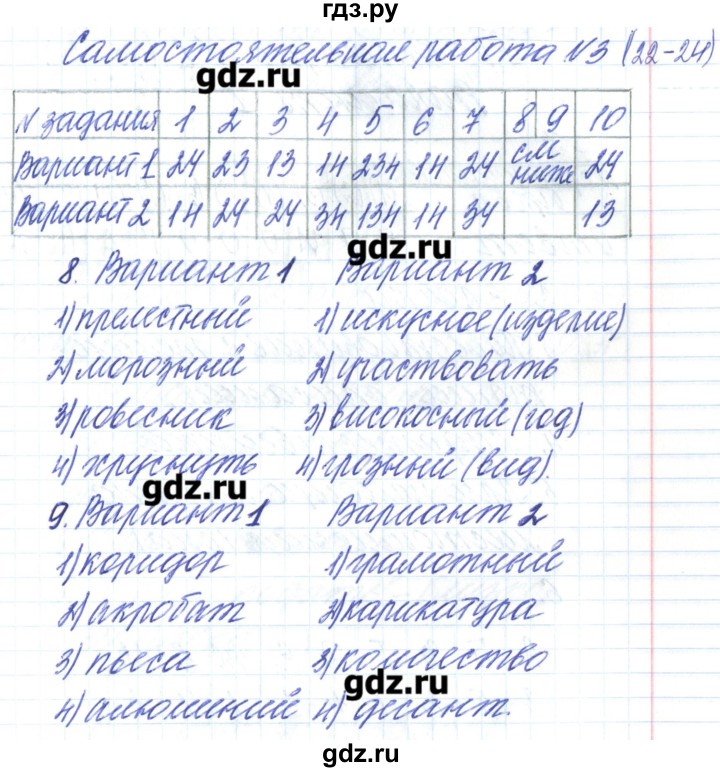 гдз.ру
Самостоятельная работа №3 (22-24)
gdz.ru
№ задания 1 2 3 4 5 6 7 8 9 10
Вариант 1 24 23 13 14 234 14 24 см ниже 24
Вариант 2 14 24 24 34 134 14 34 13
gdz.ru
8. Вариант 1 Вариант 2
1) прелестный 1) искусное (изделие)
2) морозный 2) участвовать
3) ровесник 3) високосный (год)
4) хруснуть 4) грозный (вид).
gdz.ru
9. Вариант 1 Вариант 2
1) коридор 1) грамотный
2) акробат 2) карикатура
3) пьеса 3) количество
gdz.ru
4) алюминий 4) десант.
gdz.ru